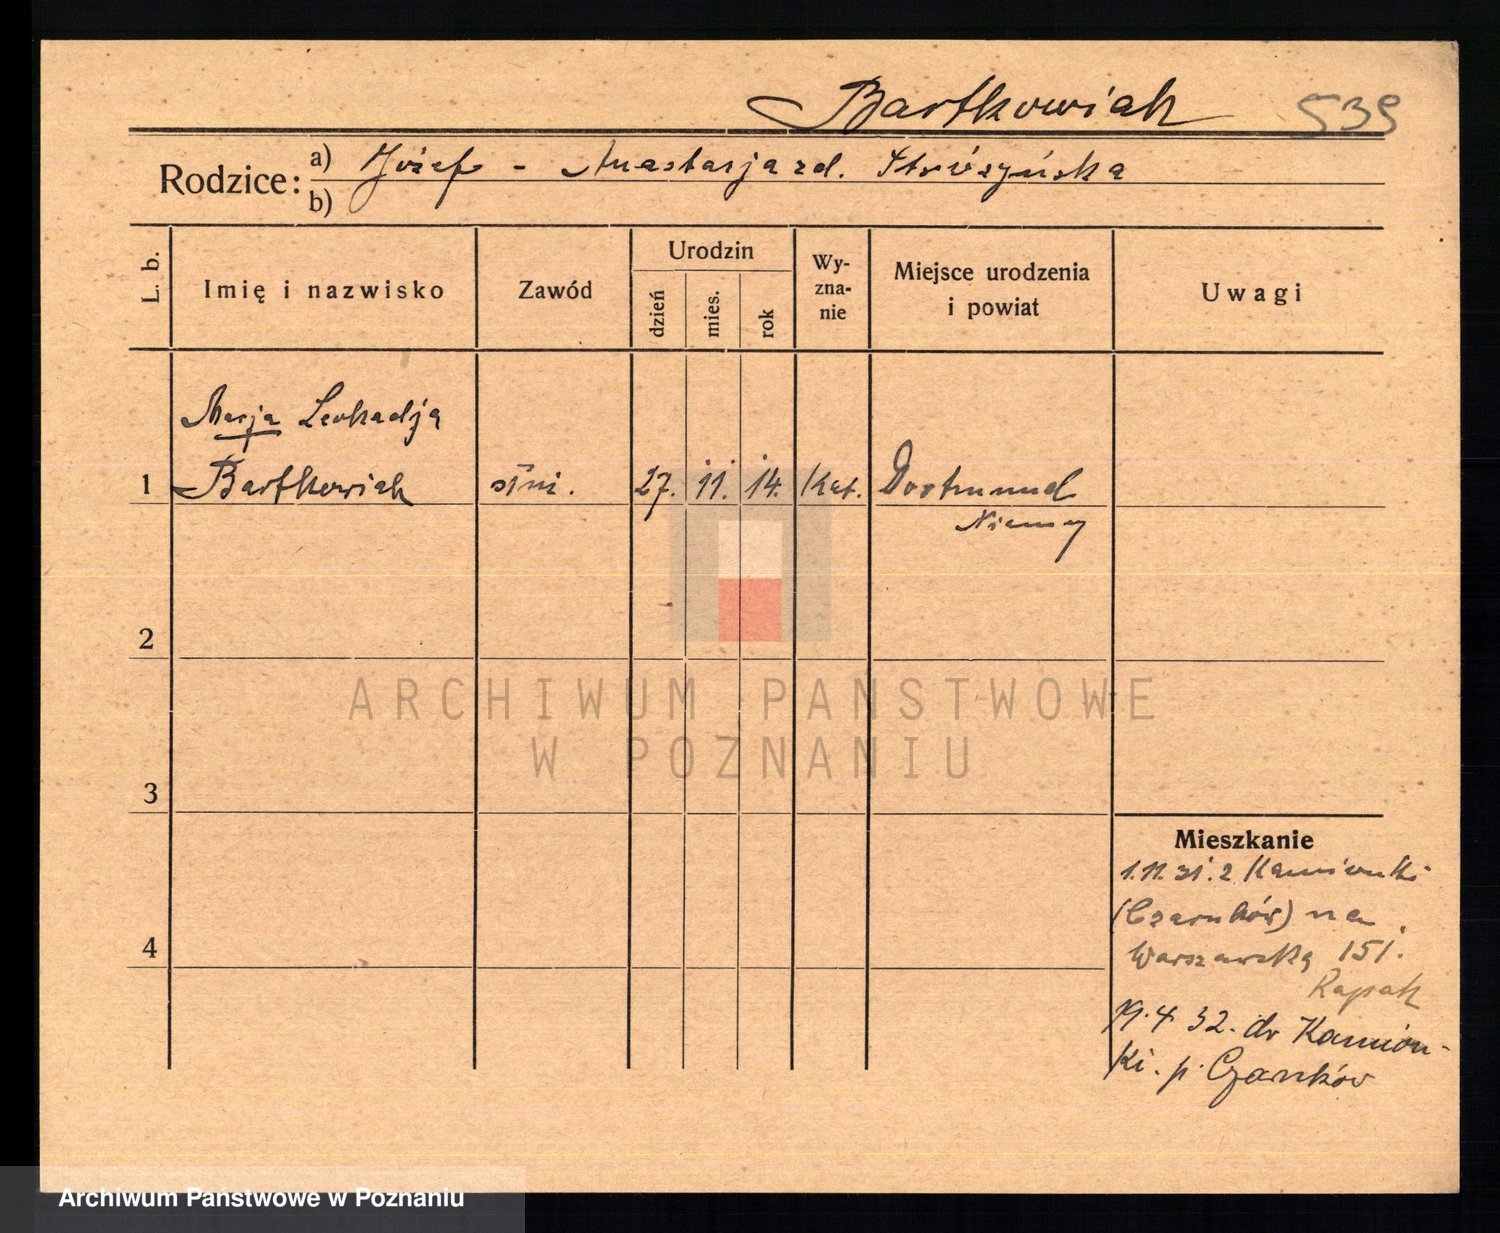 Bartkowiak 539
Rodzice:
a) Józef - Anastazja zd. Stróżyńska
b)
L. b.
Imię i nazwisko
Zawód
Urodzin
dzień
mies.
rok
Wy-
zna-
nie
Miejsce urodzenia
i powiat
Uwagi
Marja Leokadja
1 Bartkowiak 27. 11. 14. Kat. Dortmund
Niemcy
2
3
4
ARCHIWUM PANSTWOWE
W POZNANIU
Mieszkanie
1.11.31. z Kamionki
(Czarnków) na
Warszawską 151.
Rapak
19.4.32. do Kamion-
ki. p. Czarnków
Archiwum Państwowe w Poznaniu